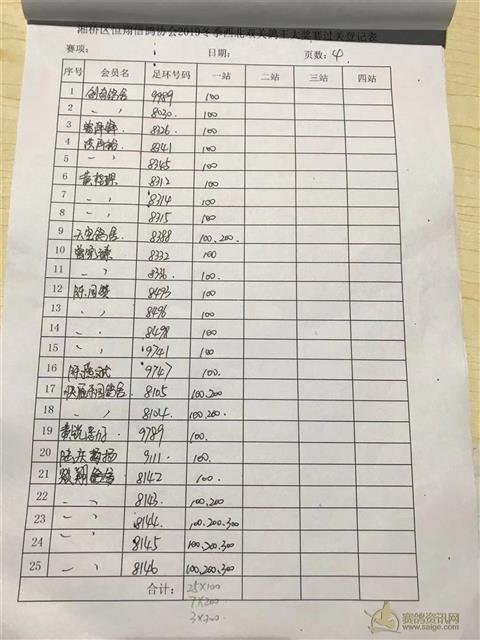 湘桥区恒翔信鸽协会2019冬季西北双关鸽王大奖赛过关登记表
赛项: 日期: 页数: 4
序号 会员名 足环号码 一站 二站 三站 四站
1 创奇鸽舍 9989 100
2 〃 8030 100
3 8326 100
4 8341 100
5 〃 8345 100
6 8312 100
7 〃 8314 100
8 〃 8315 100
9 天宝鸽舍 8388 100.200
10 8332 100
11 〃 8336 100
12 8493 100
13 〃 8496 100
14 〃 8498 100
15 〃 9741 100
16 9747 100
17 8105 100.200
18 〃 8104 100.200
19 9789 100
20 9111 100
21 8142 100
22 〃 8143 100.200
23 〃 8144 100.200.300
24 〃 8145 100.200.300
25 〃 8146 100.200.300
合计: 25×100
7×200
3×300
赛鸽资讯网
www.saige.com